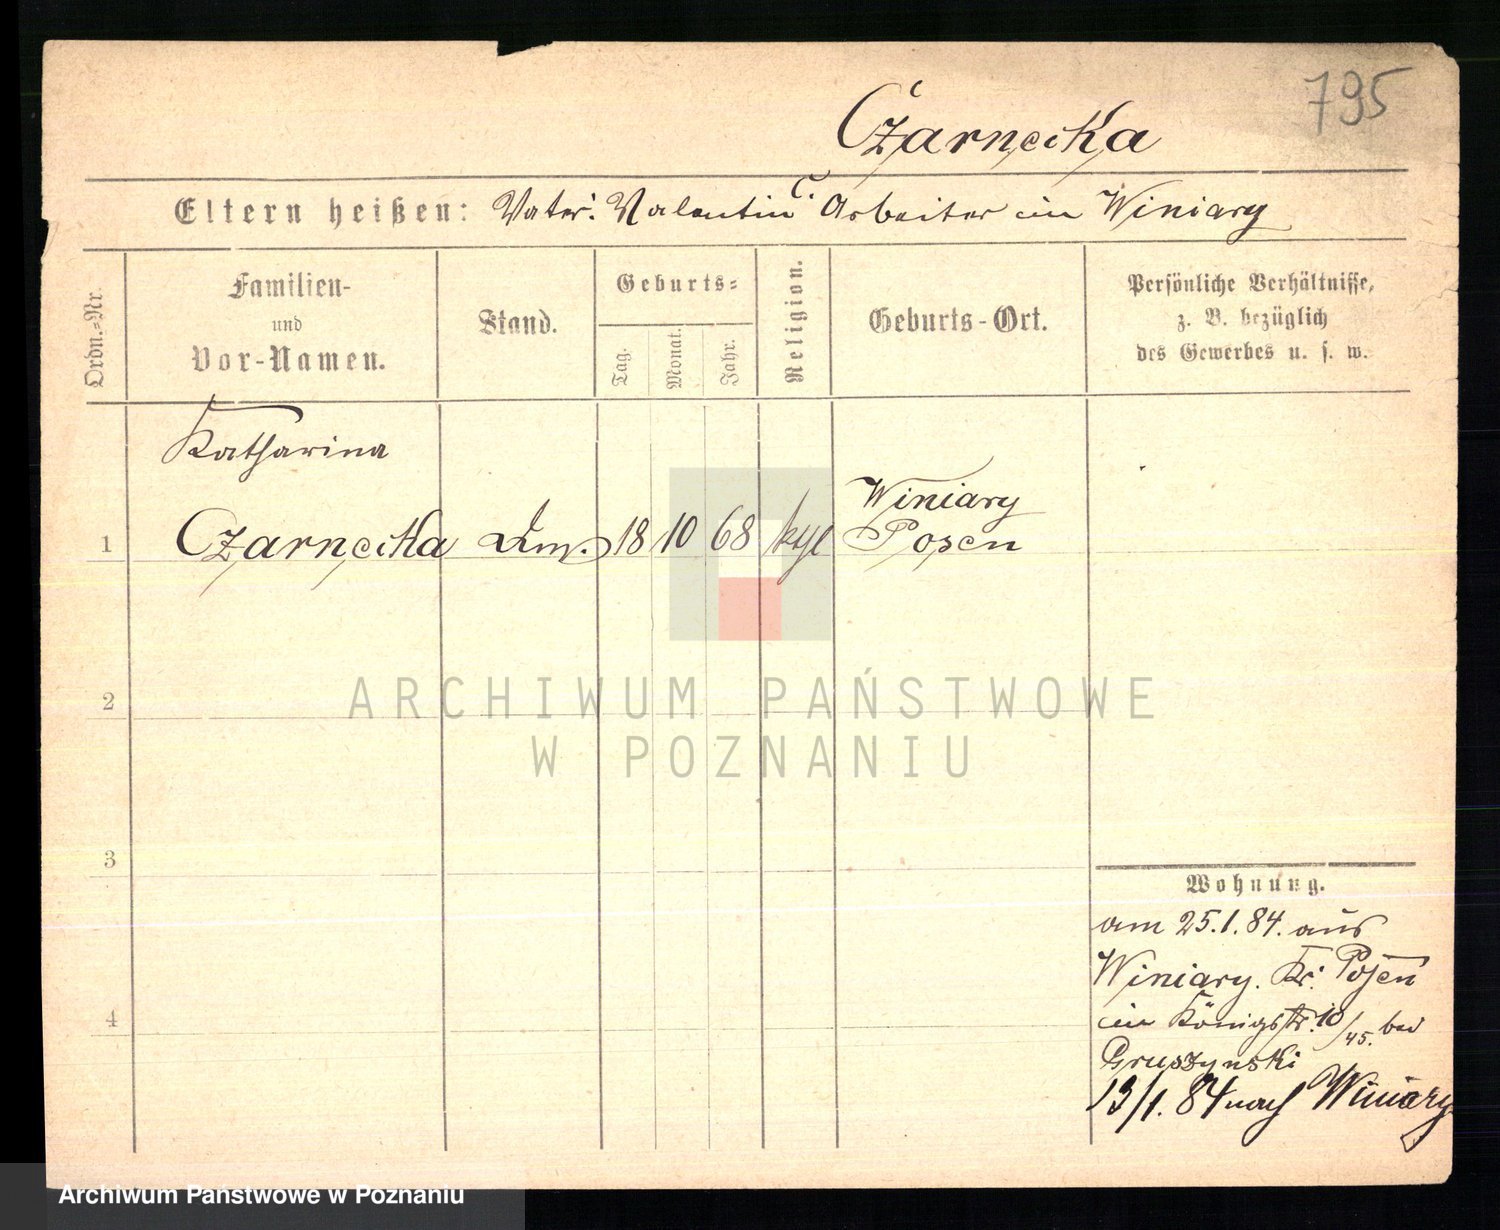 795
Czarnecka
Eltern heißen: Vater: Valentin C. Arbeiter in Winiary
Ordn.=Nr.
Familien-
und
Vor-Namen.
Stand.
Geburts=
Tag.
Monat.
Jahr.
Religion.
Geburts-Ort.
Persönliche Verhältnisse,
z. B. bezüglich
des Gewerbes u. s. w.
Katharina
Winiary
1 Czarnecka 18 10 68 Posen
2
ARCHIWUM PAŃSTWOWE
W POZNANIU
3
Wohnung.
am 25.1.84. aus
Winiary. Kr. Posen
in Königstr. 10/45. bei
Gruszynski
4
13/1. 84 nach Winiary
Archiwum Państwowe w Poznaniu